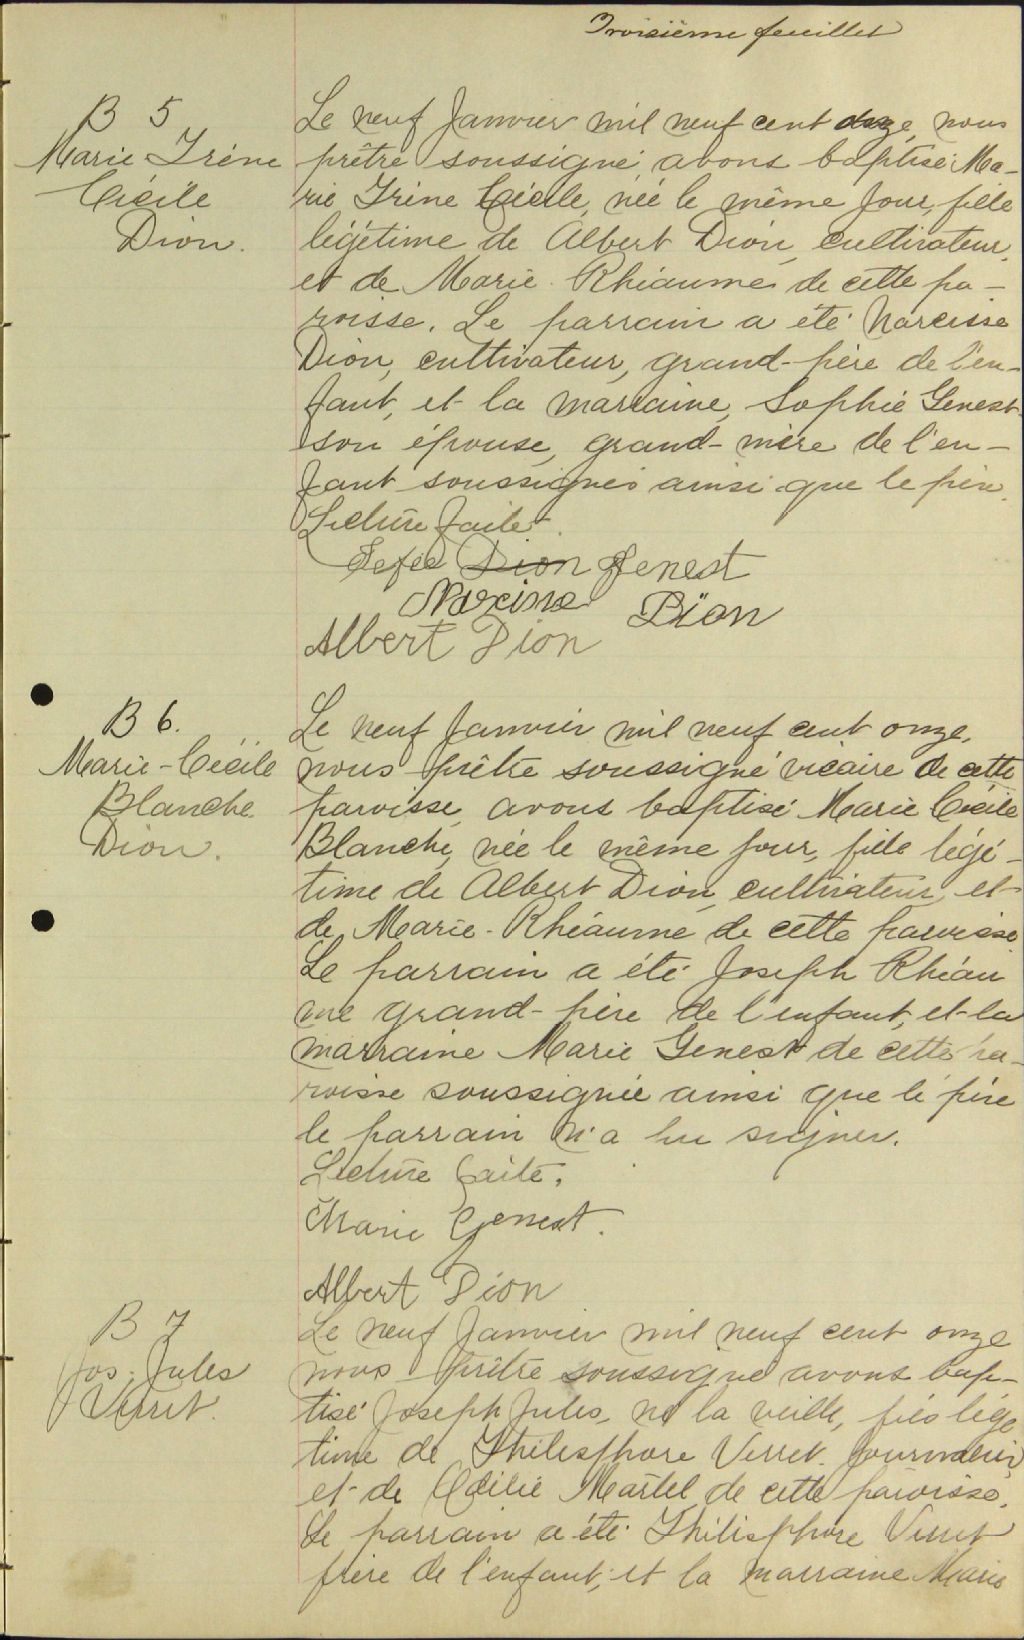 Troisième feuillet
B 5
Marie Irène
Cécile
Dion.
Le neuf Janvier mil neuf cent onze, nous
prêtre soussigné avons baptisé Ma-
rie Irène Cécile, née le même jour, fille
légétime de Albert Dion, cultivateur,
et de Marie Rhéaume de cette pa-
roisse. Le parrain a été Narcisse
Dion, cultivateur, grand-père de l'en-
fant, et la marraine, Sophie Genest
son épouse, grand-mère de l'en-
fant soussignés ainsi que le père.
Lecture faite.
Sefée Dion Genest
Narcisse Dion
Albert Dion
B 6.
Marie-Cécile
Blanche
Dion.
Le neuf Janvier mil neuf cent onze,
nous prêtre soussigné vicaire de cette
paroisse, avons baptisé Marie Cécile
Blanche, née le même jour, fille légé-
time de Albert Dion, cultivateur, et
de Marie-Rhéaume de cette paroisse
Le parrain a été Joseph Rhéau
me grand-père de l'enfant, et la
marraine Marie Genest de cette pa-
roisse soussignée ainsi que le père
le parrain n'a su signer.
Lecture faite.
Marie Genest.
Albert Dion
B 7
Jos. Jules
Verret.
Le neuf Janvier mil neuf cent onze
nous prêtre soussigné avons bap-
tisé Joseph Jules, né la veille, fils lége
time de Thélesphore Verret journalier,
et de Odilie Martel de cette paroisse.
Le parrain a été Thélisphore Verret
frère de l'enfant, et la marraine Marie